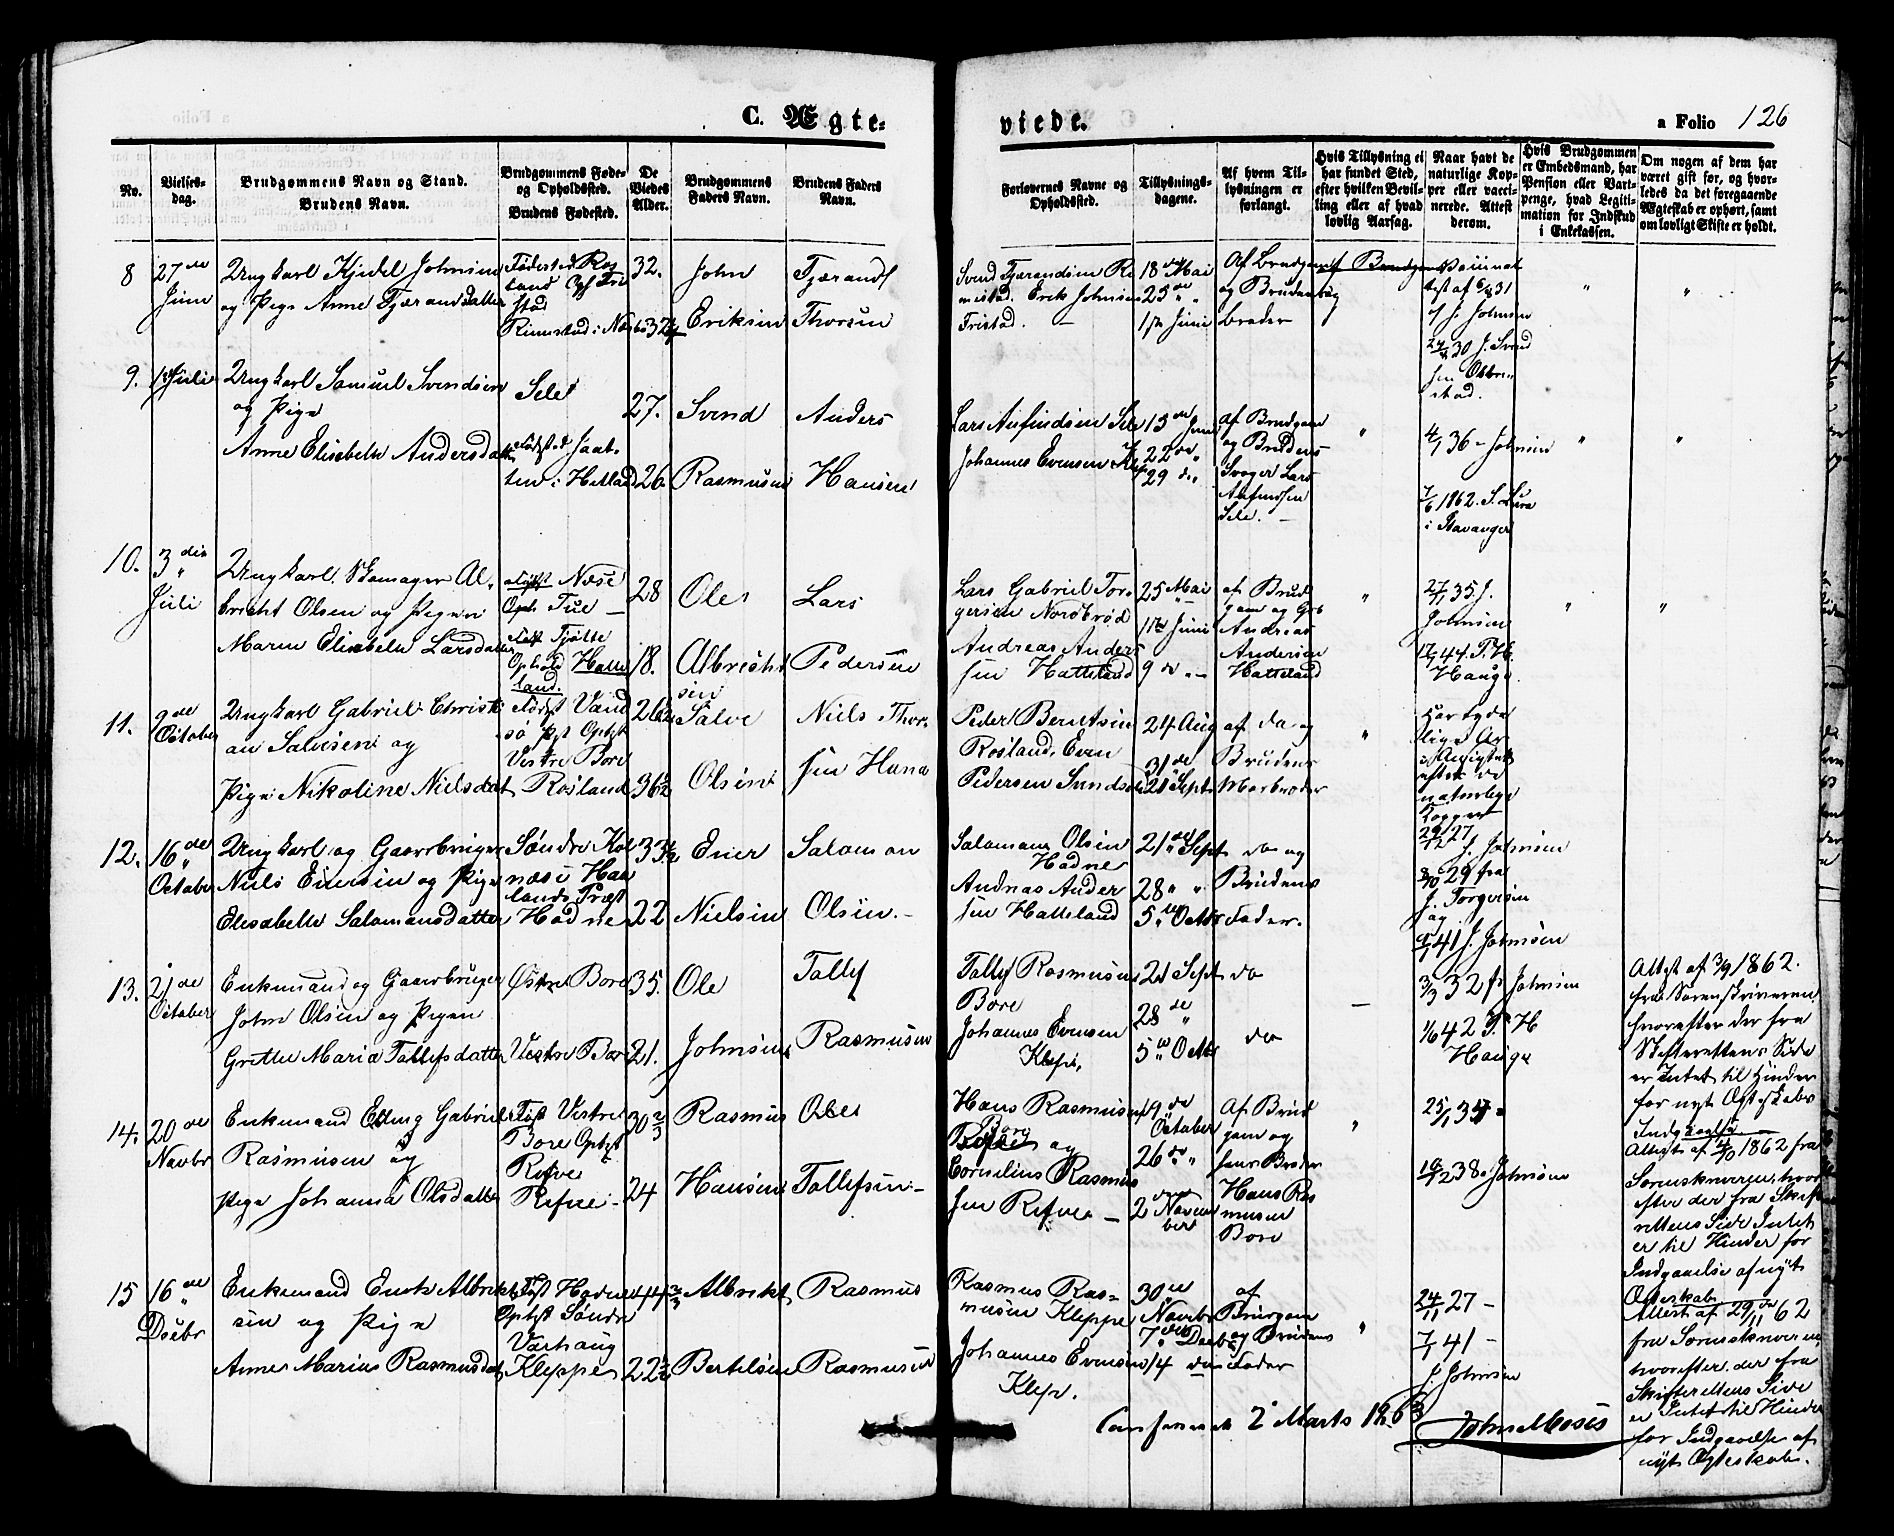 C. Ægte-
viede.
a Folio 126
No.
Vielses-
dag.
Brudgommens Navn og Stand.
Brudens Navn.
Brudgommens Føde-
og Opholdssted.
Brudens Fødested.
De
Viedes
Alder.
Brudgommens
Faders Navn.
Brudens Faders
Navn.
Forlovernes Navne og
Opholdssted.
Tillysnings-
dagene.
Af hvem Til-
lysningen er
forlangt.
Hvis Tillysning ei
har fundet Sted,
efter hvilken Bevil-
ling eller af hvad
lovlig Aarsag.
Naar havt de
naturlige Kop-
per eller vacci-
nerede. Attest
derom.
Hvis Brudgommen
er Embedsmand, har
Pension eller Vart-
penge, hvad Legiti-
mation for Indskud
i Enkekassen.
Om nogen af dem har
været gift før, og hvor-
ledes da det foregaaende
Ægteskab er ophørt, samt
om lovligt Skifte er holdt.
8
27de
Juni
Ungkarl Kjedel Johnsen
og Pige Anne Tjærandsdatter
Fødested Ros
land Oph Tri
stad
32.
John
Eriksen
Tjærand
Thorsen
Svend Tjærandsen Ri
mestad. Erik Johnsen
Tristad. —
18de Mai
25de "
1ste Juni
Af Brudgom
og Brudens
broder
9.
1ste Juli
Ungkarl Samuel Svendsen
og Pige
Anne Elisabeth Andersdatter
Sele
Fødested Jaat-
ten i Hetland
27.
26
Svend
Rasmussen
Anders
Hansen
Lars Aufindsen Sele
Johannes Evensen Klep
15de Juni
22de "
29 de "
af Brudgom
og Brudens
Svoger Lars
Aufindsen
Sele. —
4/1 36 - Johnsen
7/6 1862. S. Lura
i Stavanger
10.
3die
Juli
Ungkarl, Skomager Al-
bricht Olsen og Pigen
Maren Elisabeth Larsdatter
Født Næse
Oph. Tue —
Født Tjøtte
Ophold Hatte
land.
28
18.
Ole
Albrichtsen
Lars
Pedersen
Lars Gabriel Tor-
gersen Nordbrød
Andreas Anders
sen Hatteland
25 Mai
1ste Juni
9 de "
af Brud
gom og
Andreas
Andersen
Hatteland
27/1 35. J.
Johnsen
12/1 44. P. H.
Hauge
11.
2de
October
Ungkarl Gabriel Christi
an Salvesen og
Pige Nikoline Nielsdat
Født Vand
sø Pgt Ophgt
Vestre Bore
Rosland
26½
36½
Salve
Olsen
Niels Thor-
sen Hana
Peder Berntsen
Rosland, Even
Pedersen Sunds
24 Aug
31de
21 Septr
af do og
Brudens
Morbroder
Har tyde
lige Ar
i Ansigtet
efter de
naturlige
Kopper
12.
16de
October
Ungkarl og Gaardbruger
Niels Enersen og Pige
Elisabeth Salomonsdatter
Søndre Kol
næs i Haa
lands Præst
Hodne
33½
22
Ener
Nielsen
Salomon
Olsen. -
Salomon Olsen
Hodne
Andreas Ander
sen Hatteland
21de Sept
28 " "
5te Octbr
do og
Brudens
Fader.
29/12 27.
J. Johnsen
8/10 29 fra
J. Torgersen
og
9/1 41 J. Johnsen
13.
21de
October
Enkemand og Gaardbruger
John Olsen og Pigen
Grethe Maria Tollefsdatter
Østre Bore
Vestre Bore
35.
21.
Ole
Johnsen
Tollef
Rasmusen
Tollef Rasmusen
Bore
Johannes Evensen
Klep,
21 Sept
28de "
5te Octbr
do
do
—
3/3 32 fr Johnsen
1/6 42 P. H
Hauge
Attest af 3/9 1862.
fra Sorenskriveren
hvorefter der fra
Skifterettens Side
er Intet til Hinder
for nyt Ægteskabs
Indgaaelse
14.
20de
Novbr
Enkemand Elling Gabriel
Rasmusen og
Pige Johanna Olsdatter
Født Vestre
Bore Ophgt
Refve
Refve -
30 2/3
24
Rasmus
Hansen
Ole
Tollefsen -
Hans Rasmusen
Bore
og
Cornelius Rasmus
sen Refve —
19de
October
26 de "
2den Novem
ber
Af Brud
gom og
hans Broder
Hans Ras
musen
Bore
25/1 34 "
19/12 38. Johnsen
Attest af 4/10 1862 fra
Sorenskriveren, hvor
efter der fra Skift
rettens Side Intet
er til Hinder for
Indgaaelse af nyt
Ægteskab
15
16de
Decbr
Enkemand Enok Albrikt
sen og Pige
Anne Marie Rasmusdat
Født Hodne
Ophgt Søndre
Varhaug
Kleppe
44 2/3
22½
Albrikt
Bertelsen
Rasmus
Rasmusen
Rasmus Ras-
musen Kleppe
Johannes Evensen
Klep.
30te
Novbr
7de Decbr
14 de
af
Brudgom
og Brudens
Fader
24/11 27 -
7/1 41 -
J. Johnsen
Attest af 29/11 62
fra Sorenskriveren
hvorefter der fra
Skifterettens Side
er Intet til Hinder
for Indgaaelse af
nyt Ægteskab.
Confereret 2 Marts 1863